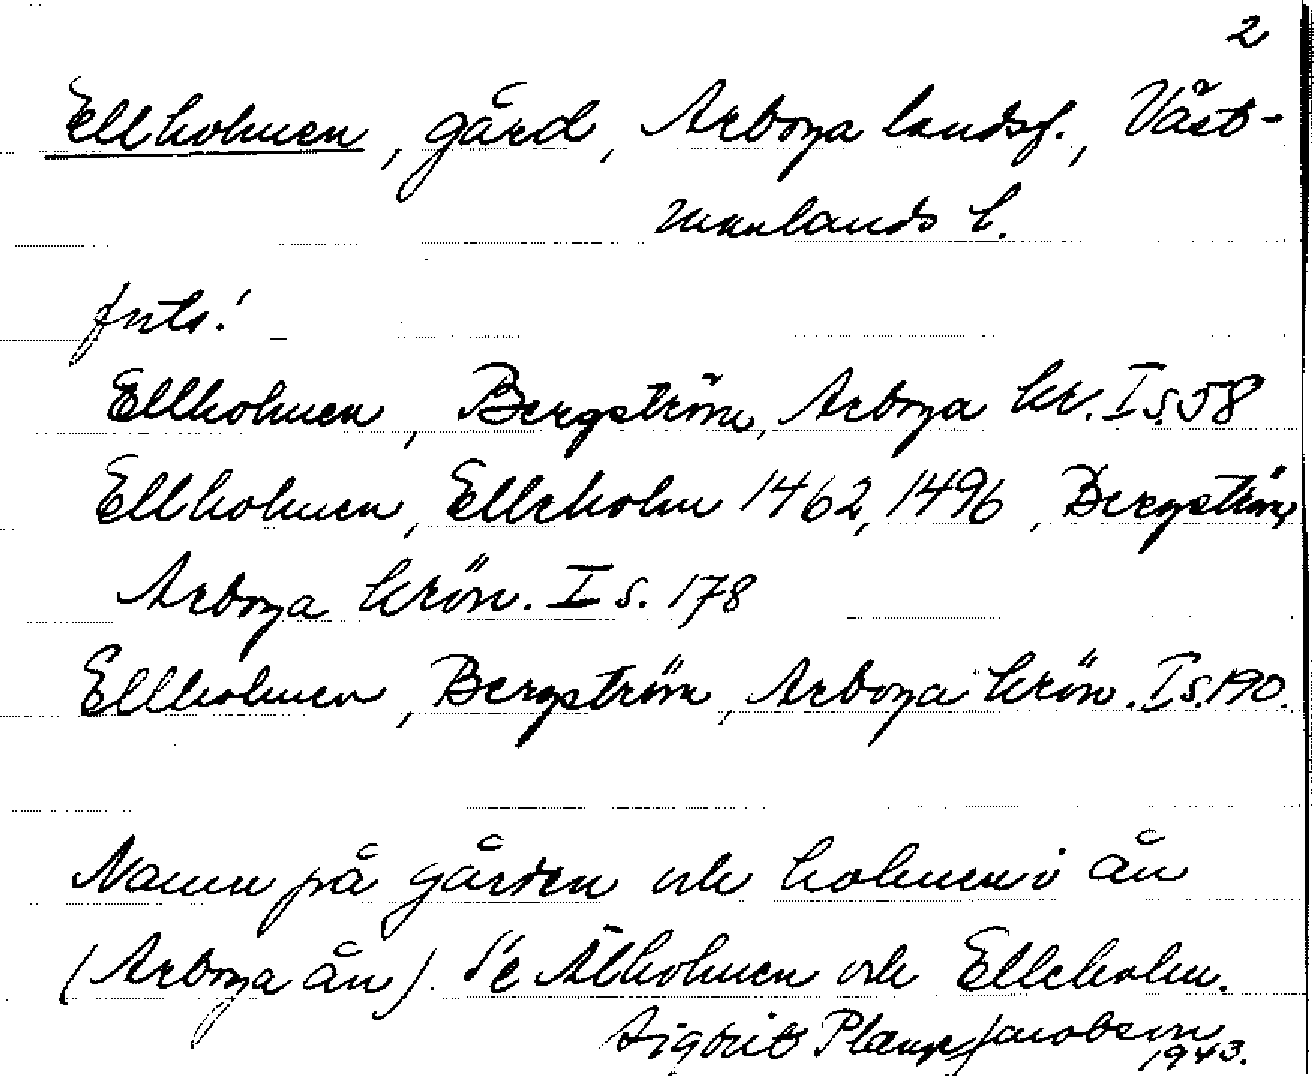 2
Ellholmen, gård, Arboga landsf., Väst-
manlands l.
Ellholmen, Bergström, Arboga kr. I s. 58
Ellholmen, Elleholm 1462, 1496, Bergström,
Arboga krön. I s. 178
Ellholmen, Bergström, Arboga krön. I s. 190.
Namn på gården och holmen i ån
(Arboga ån). Se Ålholmen och Elleholm.
Sigbrit Plænge Jacobson
1943.